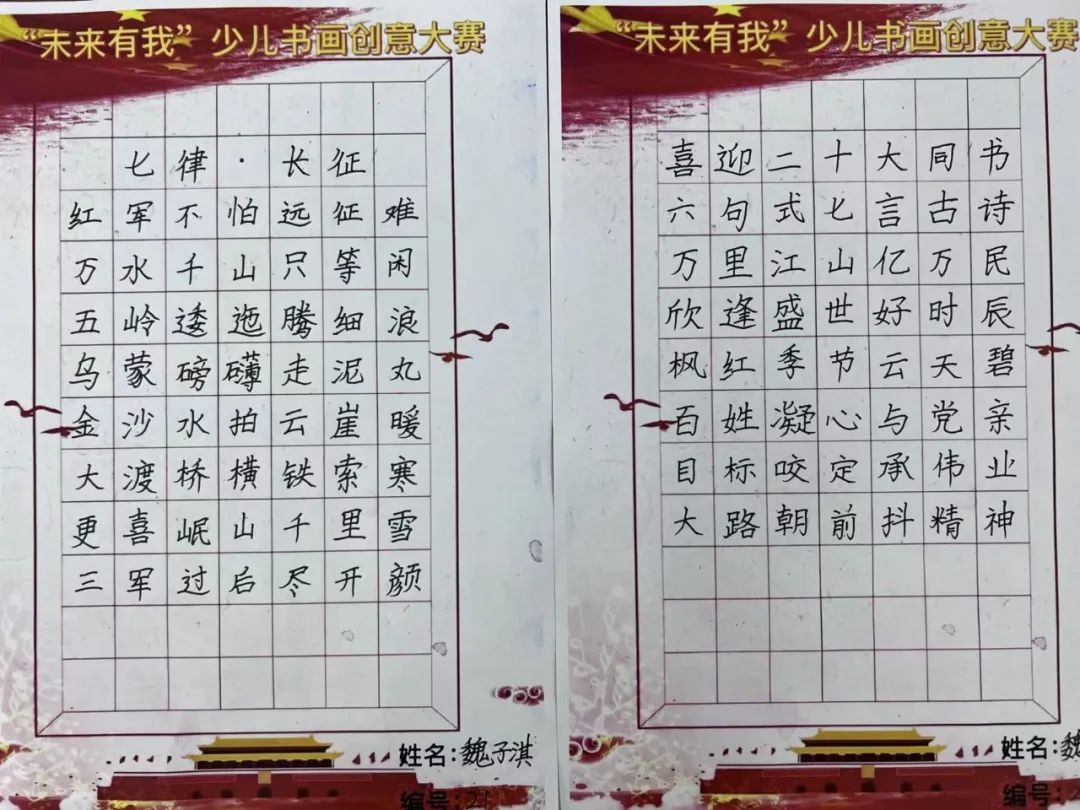 “未来有我”少儿书画创意大赛
七律·长征
红军不怕远征难
万水千山只等闲
五岭逶迤腾细浪
乌蒙磅礴走泥丸
金沙水拍云崖暖
大渡桥横铁索寒
更喜岷山千里雪
三军过后尽开颜
姓名:魏子淇
编号:21
“未来有我”少儿书画创意大赛
喜迎二十大同书
六句式七言古诗
万里江山亿万民
欣逢盛世好时辰
枫红季节云天碧
百姓凝心与党亲
目标咬定承伟业
大路朝前抖精神
姓名:魏
编号:2